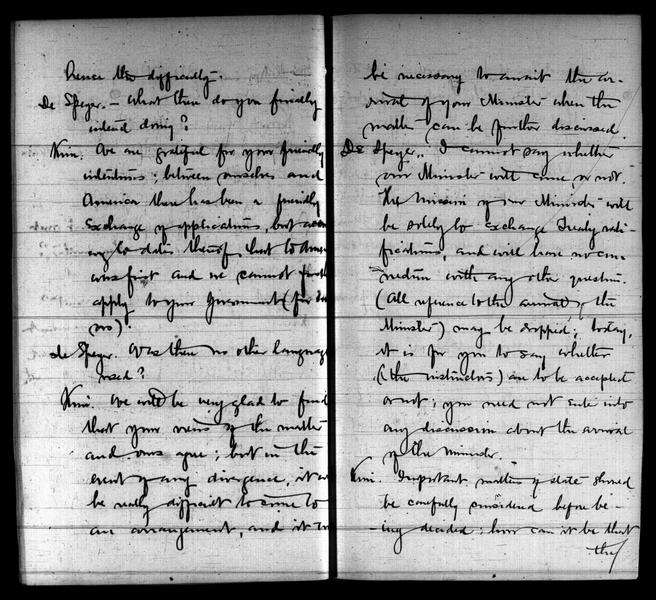 hence the difficulty.
De Speyer. – What then do you finally
intend doing?
Kim. We are grateful for your friendly
intentions; between ourselves and
America there has been a friendly
exchange of applications, but
to dates thereof, that to
was first and we cannot
apply to your Government (for
)
de Speyer. Was there no other language
used?
Kim. We will be very glad to find
that your views of the matter
and ours agree; but in the
event of any divergence, it
be really difficult to come to
an arrangement, and it
be necessary to await the ar-
rival of your Minister when the
matter can be further discussed.
De Speyer.. I cannot say whether
our Minister will come, or not.
The mission of our Minister will
be solely to exchange Treaty rati-
fications, and will have no con-
nection with any other question.
(All reference to the arrival of the
Minister) may be dropped; today,
it is for you to say whether
(the instructors) are to be accepted
or not; you need not enter into
any discussion about the arrival
of the Minister.
Kim. Important matters of state should
be carefully considered before be-
-ing decided; how can it be that
they